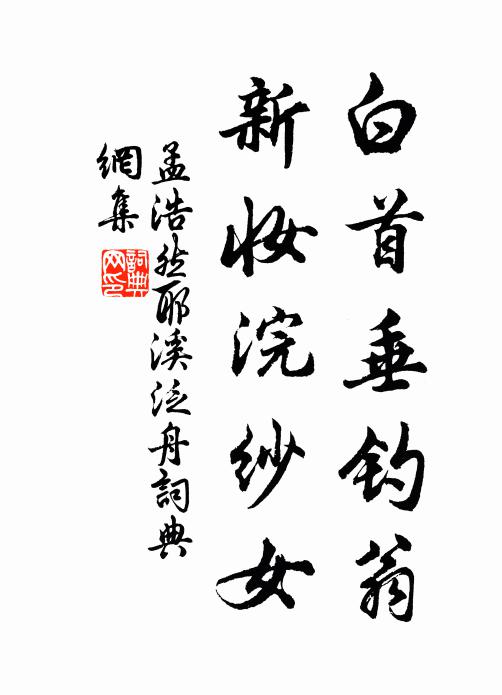 白首垂钓翁
新妆浣纱女
孟浩然耶溪泛舟詞典
網集
詞典
网印